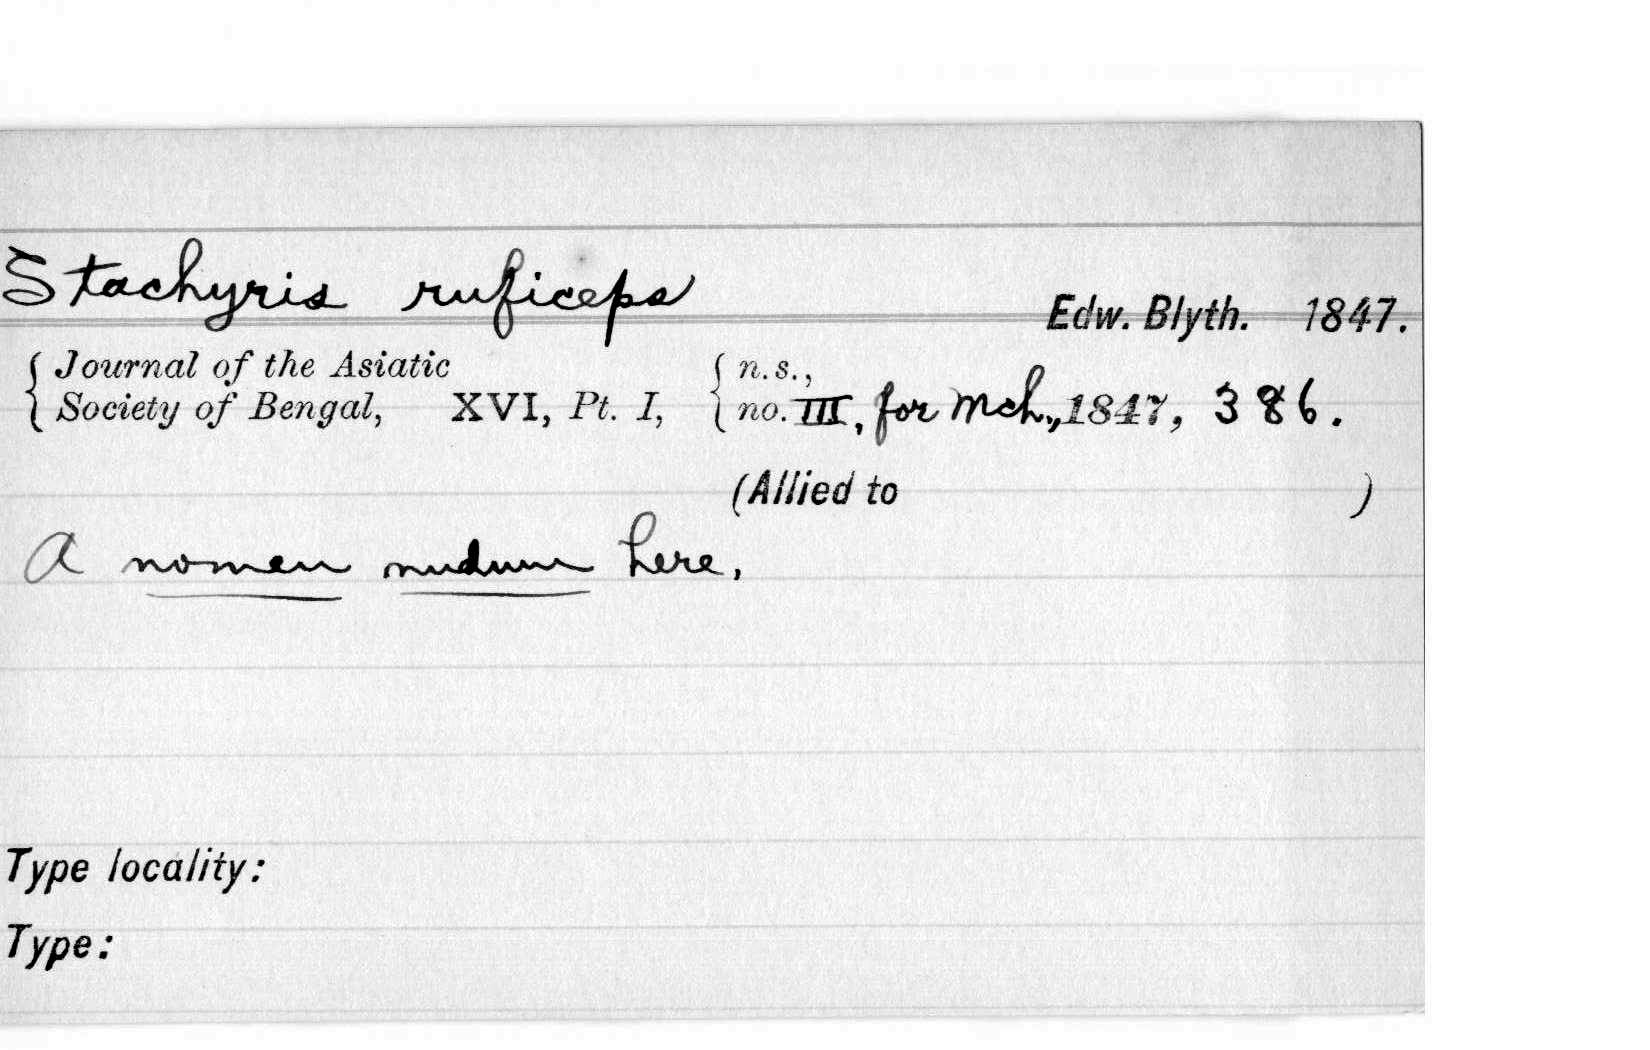 Stachyris ruficeps
Edw. Blyth. 1847.
Journal of the Asiatic
Society of Bengal, XVI, Pt. I, n.s.,
no. III, for Mch., 1847, 386.
(Allied to )
A nomen nudum here.
Type locality:
Type: